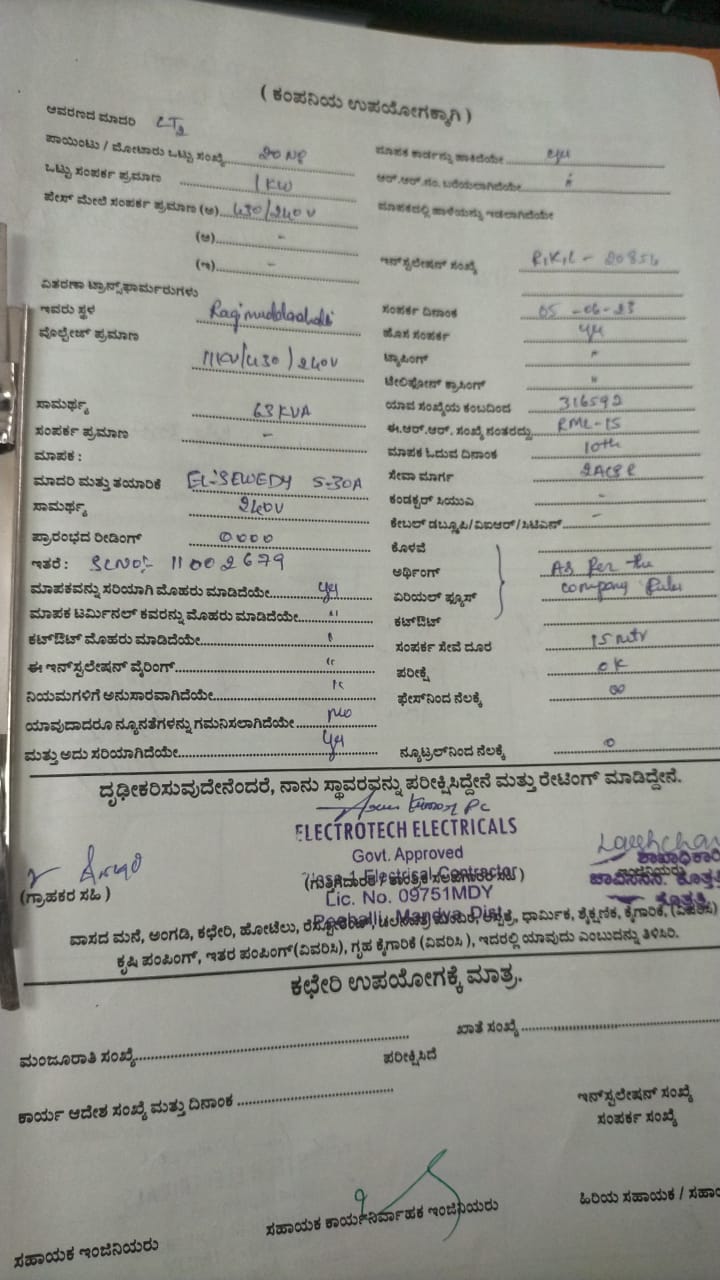 ( ಕಂಪನಿಯ ಉಪಯೋಗಕ್ಕಾಗಿ )
ಆವರಣದ ಮಾದರಿ LT2
ಪಾಯಿಂಟು / ಮೋಟಾರು ಒಟ್ಟು ಸಂಖ್ಯೆ 20 ಮಾಪಕ ಕಾರ್ಡನ್ನು ಹಾಕಿದೆಯೇ yes
ಒಟ್ಟು ಸಂಪರ್ಕ ಪ್ರಮಾಣ 1KW ಆರ್.ಆರ್.ನಂ. ಬರೆಯಲಾಗಿದೆಯೇ "
ಫೇಸ್ ಮೇಲೆ ಸಂಪರ್ಕ ಪ್ರಮಾಣ (ಅ) 430/240V ಮಾಪಕದಲ್ಲಿ ಹಾಳೆಯನ್ನು ಇಡಲಾಗಿದೆಯೇ
(ಆ) -
(ಇ) - ಇನ್‌ಸ್ಟಲೇಷನ್ ಸಂಖ್ಯೆ
ವಿತರಣಾ ಟ್ರಾನ್ಸ್‌ಫಾರ್ಮರುಗಳು
ಇವರು ಸ್ಥಳ Ragimuddanahalli ಸಂಪರ್ಕ ದಿನಾಂಕ 05-06-23
ವೊಲ್ಟೇಜ್ ಪ್ರಮಾಣ 11KV/430/240V ಹೊಸ ಸಂಪರ್ಕ yes
ಟ್ಯಾಪಿಂಗ್ "
ಟೆಲಿಫೋನ್ ಕ್ರಾಸಿಂಗ್ "
ಸಾಮರ್ಥ್ಯ 63KVA ಯಾವ ಸಂಖ್ಯೆಯ ಕಂಬದಿಂದ 316592
ಸಂಪರ್ಕ ಪ್ರಮಾಣ - ಈ.ಆರ್.ಆರ್. ಸಂಖ್ಯೆ ನಂತರದ್ದು RML-15
ಮಾಪಕ : ಮಾಪಕ ಓದುವ ದಿನಾಂಕ 10th
ಮಾದರಿ ಮತ್ತು ತಯಾರಿಕೆ EL-SEWEDY 5-30A ಸೇವಾ ಮಾರ್ಗ
ಸಾಮರ್ಥ್ಯ 240V ಕಂಡಕ್ಟರ್ ಸಿಯುವಿ -
ಪ್ರಾರಂಭದ ರೀಡಿಂಗ್ 0000 ಕೇಬಲ್ ಡಬ್ಲೂಪಿ/ವಿಐಆರ್/ಸಿಟಿಎಸ್ -
ಇತರೆ : SLNO:- 11002679 ಕೊಳವೆ
ಮಾಪಕವನ್ನು ಸರಿಯಾಗಿ ಮೊಹರು ಮಾಡಿದೆಯೇ yes ಅರ್ಥಿಂಗ್ As Per the
ಮಾಪಕ ಟರ್ಮಿನಲ್ ಕವರನ್ನು ಮೊಹರು ಮಾಡಿದೆಯೇ " ಏರಿಯಲ್ ಫ್ಯೂಸ್ company Rules
ಕಟ್‌ಔಟ್ ಮೊಹರು ಮಾಡಿದೆಯೇ " ಕಟ್‌ಔಟ್
ಈ ಇನ್‌ಸ್ಟಲೇಷನ್ ವೈರಿಂಗ್ " ಸಂಪರ್ಕ ಸೇವೆ ದೂರ 15 mtr
ನಿಯಮಗಳಿಗೆ ಅನುಸಾರವಾಗಿದೆಯೇ " ಪರೀಕ್ಷೆ OK
ಯಾವುದಾದರೂ ನ್ಯೂನತೆಗಳನ್ನು ಗಮನಿಸಲಾಗಿದೆಯೇ no ಫೇಸ್‌ನಿಂದ ನೆಲಕ್ಕೆ ∞
ಮತ್ತು ಅದು ಸರಿಯಾಗಿದೆಯೇ yes ನ್ಯೂಟ್ರಲ್‌ನಿಂದ ನೆಲಕ್ಕೆ 0
ದೃಢೀಕರಿಸುವುದೇನೆಂದರೆ, ನಾನು ಸ್ಥಾವರವನ್ನು ಪರೀಕ್ಷಿಸಿದ್ದೇನೆ ಮತ್ತು ರೇಟಿಂಗ್ ಮಾಡಿದ್ದೇನೆ.
ELECTROTECH ELECTRICALS
Govt. Approved
Electrical Contractor
(ಗ್ರಾಹಕರ ಸಹಿ )
Lic. No. 09751MDY
Mandya Dist
ವಾಸದ ಮನೆ, ಅಂಗಡಿ, ಕಛೇರಿ, ಹೋಟೆಲು, ಧಾರ್ಮಿಕ, ಶೈಕ್ಷಣಿಕ, ಕೈಗಾರಿಕೆ, (ವಿವರಿಸಿ)
ಕೃಷಿ ಪಂಪಿಂಗ್, ಇತರ ಪಂಪಿಂಗ್(ವಿವರಿಸಿ), ಗೃಹ ಕೈಗಾರಿಕೆ (ವಿವರಿಸಿ ), ಇದರಲ್ಲಿ ಯಾವುದು ಎಂಬುದನ್ನು ತಿಳಿಸಿರಿ.
ಕಛೇರಿ ಉಪಯೋಗಕ್ಕೆ ಮಾತ್ರ.
ಮಂಜೂರಾತಿ ಸಂಖ್ಯೆ ಖಾತೆ ಸಂಖ್ಯೆ
ಪರೀಕ್ಷಿಸಿದೆ
ಕಾರ್ಯ ಆದೇಶ ಸಂಖ್ಯೆ ಮತ್ತು ದಿನಾಂಕ ಇನ್‌ಸ್ಟಲೇಷನ್ ಸಂಖ್ಯೆ
ಸಂಪರ್ಕ ಸಂಖ್ಯೆ
ಸಹಾಯಕ ಇಂಜಿನಿಯರು ಸಹಾಯಕ ಕಾರ್ಯನಿರ್ವಾಹಕ ಇಂಜಿನಿಯರು ಹಿರಿಯ ಸಹಾಯಕ /